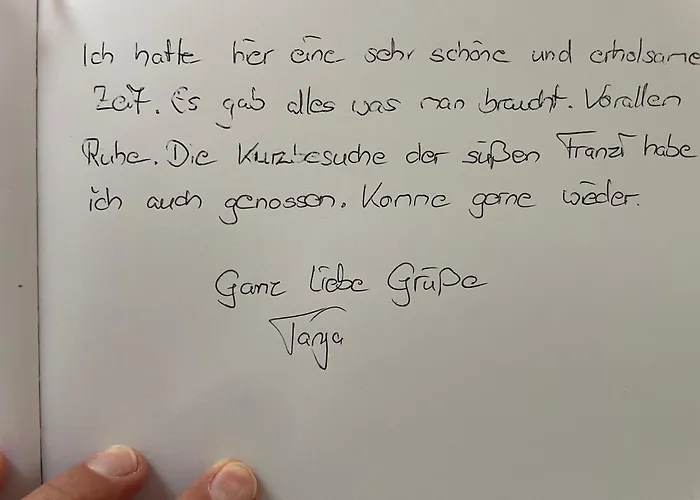 Ich hatte hier eine sehr schöne und erholsame
Zeit. Es gab alles was man braucht. Vorallen
Ruhe. Die Kurzbesuche der süßen Franzi habe
ich auch genossen. Komme gerne wieder.
Ganz liebe Grüße
Tanja